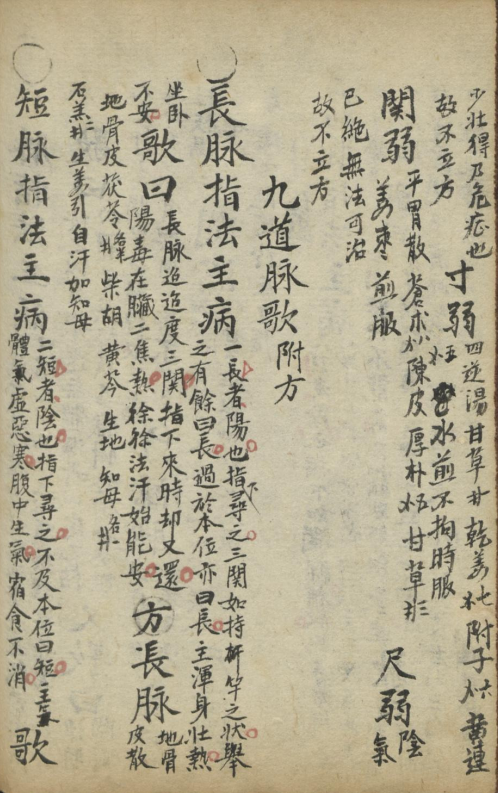 少壯得乃危症也
故不立方 寸弱 四逆湯 甘草 乾姜 附子 黃連
水煎不拘時服
関弱 平胃散 蒼朮 陳皮 厚朴 甘草
姜枣煎服 尺弱 陰氣
已絶無法可治
故不立方
九道脉歌 附方
長脉指法主病 一長者陽也指下尋之三関如持竿之状舉
之有餘曰長過於本位亦曰長主渾身壯熱
坐卧
不安 歌曰 長脉迢迢度三関指下來時却又還
陽毒在臟二焦熱徐徐法汗始能安 方 長脉 地骨
皮散
地骨皮 茯苓 柴胡 黃芩 生地 知母
石羔 生姜引 自汗加知母
短脉指法主病 二短者陰也指下尋之不及本位曰短主氣
體氣虛惡寒腹中生氣宿食不消 歌